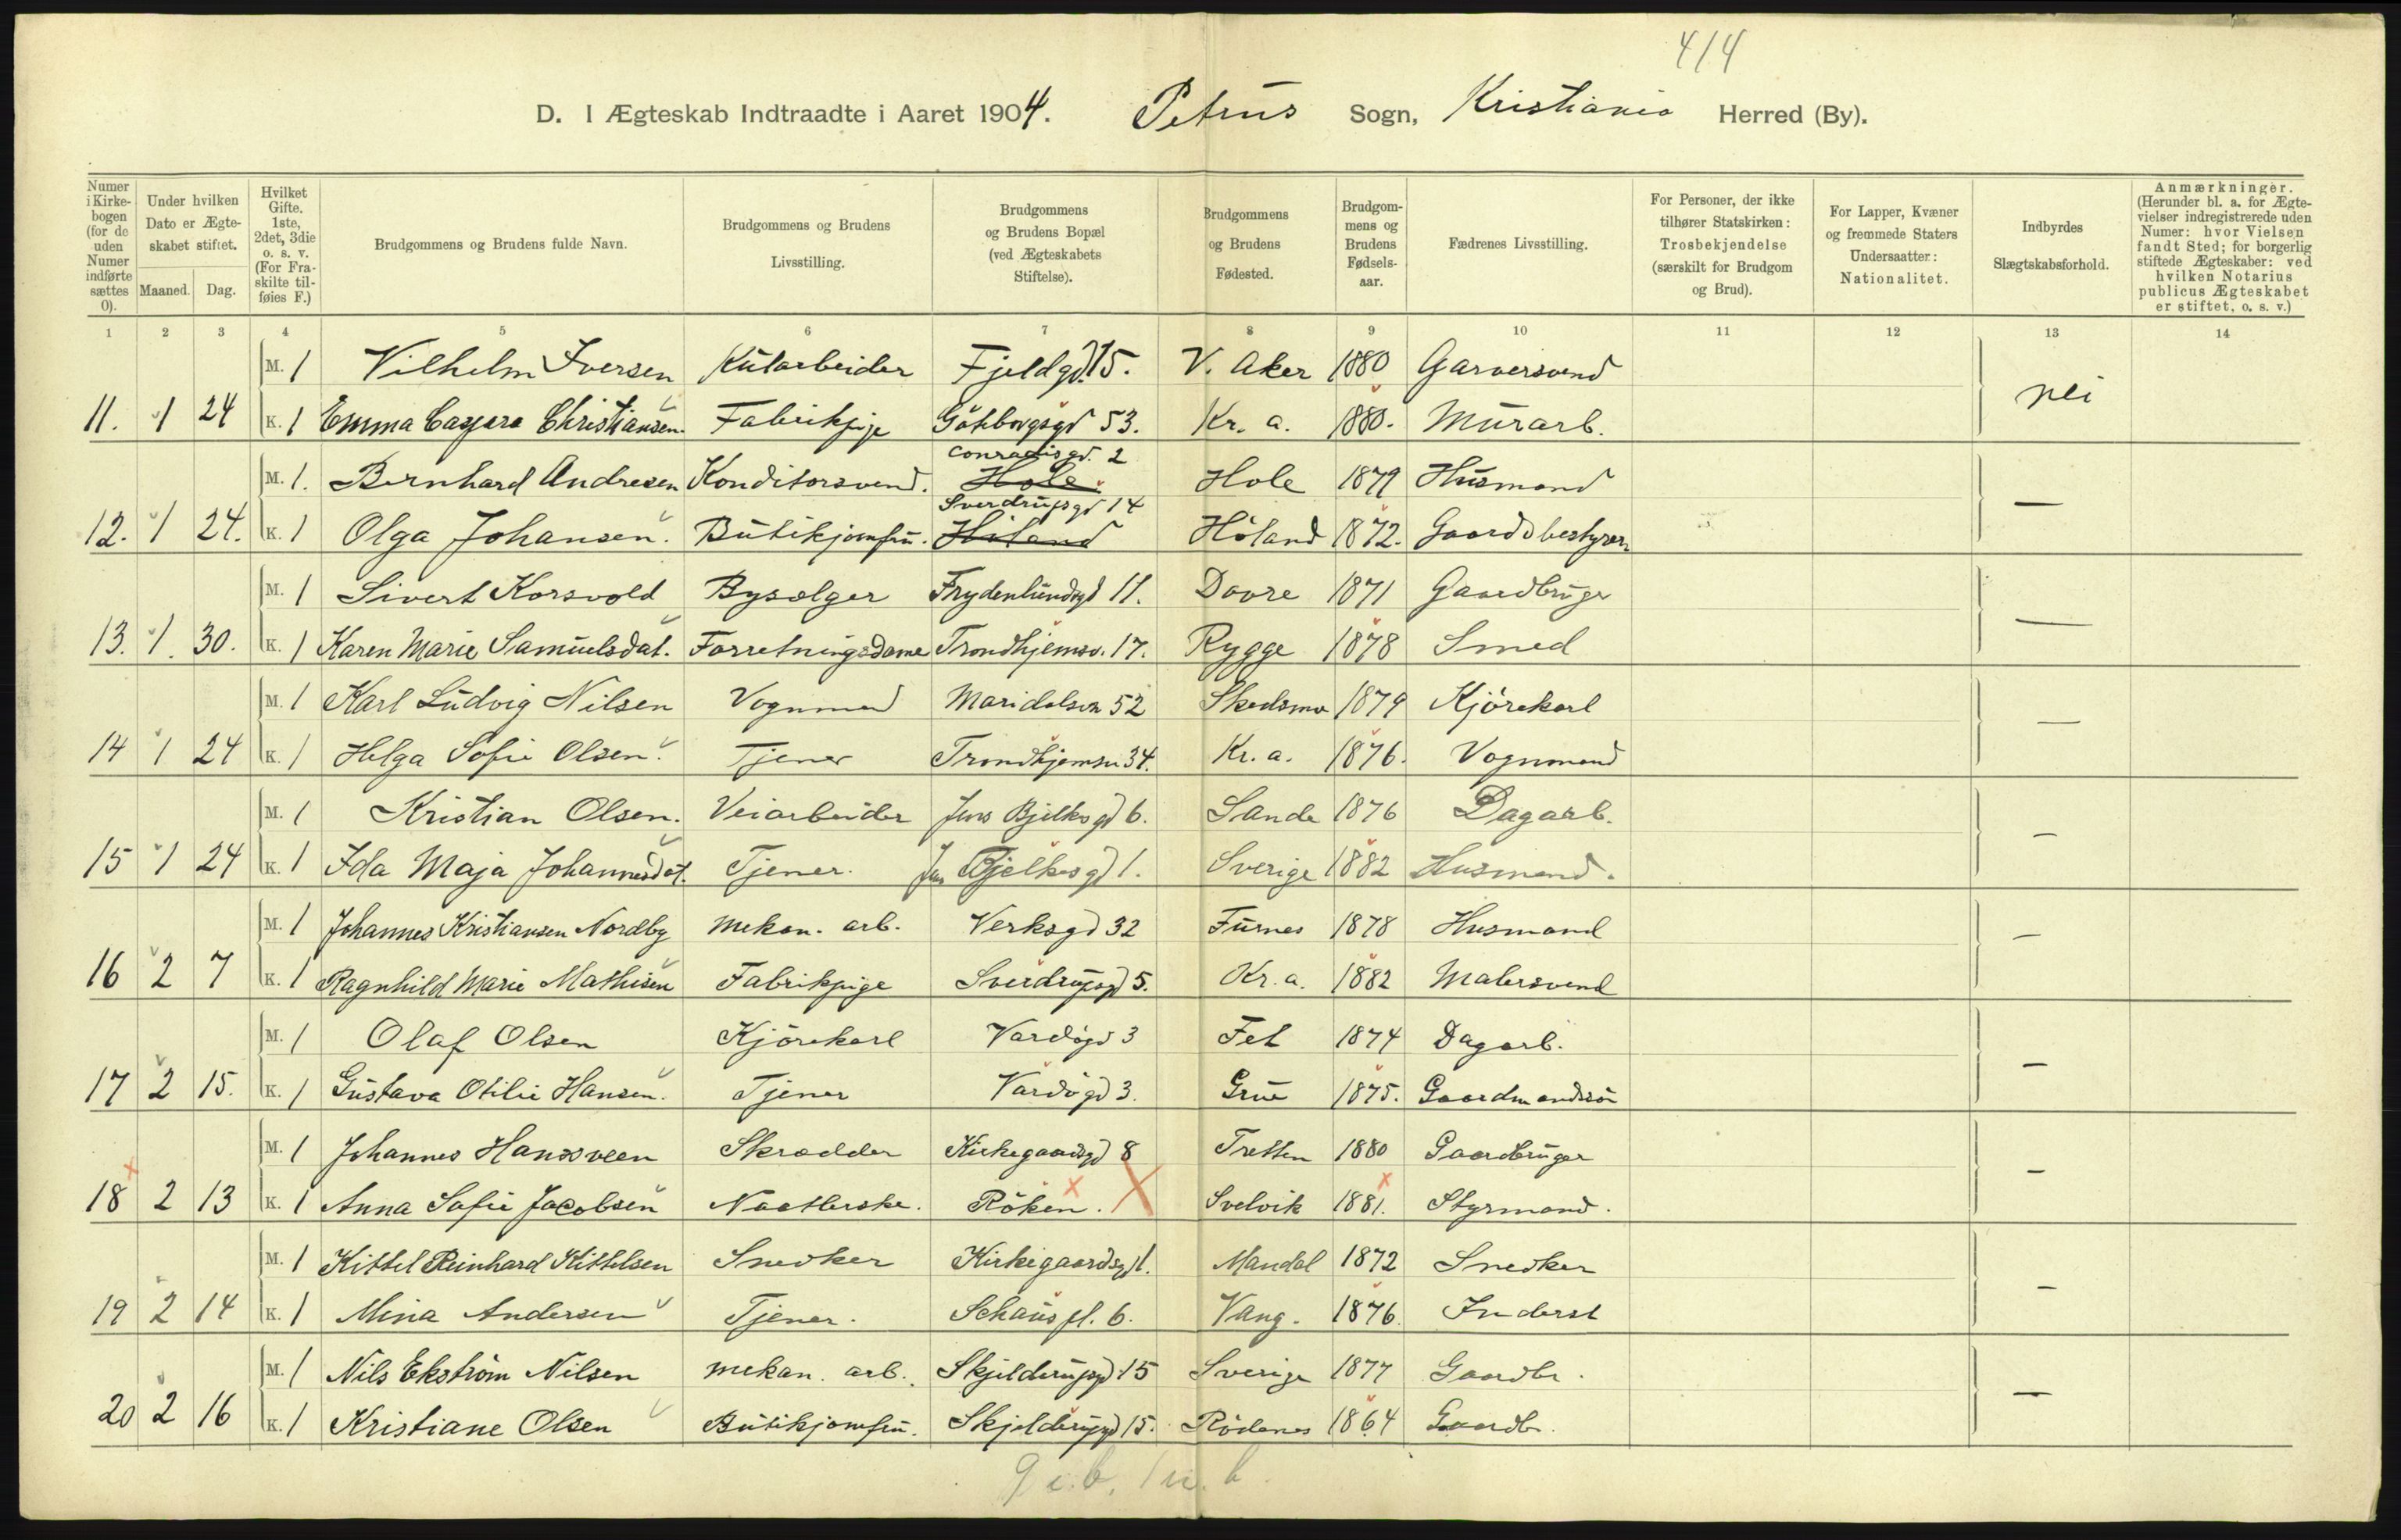 414
D. I Ægteskab Indtraadte i Aaret 1904. Petrus Sogn, Kristiania Herred (By).
Numer i Kirke-bogen (for de uden Numer indførte sættes 0). | Under hvilken Dato er Ægte-skabet stiftet. Maaned. Dag. | Hvilket Gifte. 1ste, 2det, 3die o. s. v. (For Fra-skilte til-føies F.) | Brudgommens og Brudens fulde Navn. | Brudgommens og Brudens Livsstilling. | Brudgommens og Brudens Bopæl (ved Ægteskabets Stiftelse). | Brudgommens og Brudens Fødested. | Brudgom-mens og Brudens Fødsels-aar. | Fædrenes Livsstilling. | For Personer, der ikke tilhører Statskirken: Trosbekjendelse (særskilt for Brudgom og Brud). | For Lapper, Kvæner og fremmede Staters Undersaatter: Nationalitet. | Indbyrdes Slægtskabsforhold. | Anmærkninger. (Herunder bl. a. for Ægte-vielser indregistrerede uden Numer: hvor Vielsen fandt Sted; for borgerlig stiftede Ægteskaber: ved hvilken Notarius publicus Ægteskabet er stiftet, o. s. v.)
1 2 3 4 5 6 7 8 9 10 11 12 13 14
M. 1 Vilhelm Iversen Kularbeider Fjeldgd. 15. V. Aker 1880 Garversvend
nei
11. 1 24 K. 1 Emma Caspara Christiansen. Fabrikpige Göteborgsgd 53. Kr. a. 1880. Murarb.
Conradisgd. 2
M. 1. Bernhard Andresen Konditorsvend. Hole Hole 1879 Husmand
—
Sverdrupsgd 14
12. 1 24. K. 1 Olga Johansen. Butikjomfru. Höland Höland 1872. Gaardsbestyrer
M. 1 Sivert Korsvold Bysælger Frydenlundsgd 11. Dovre 1871 Gaardbruger
—
13. 1. 30. K. 1 Karen Marie Samuelsdat. Forretningsdame Trondhjemsv. 17. Rygge 1878 Smed
M. 1 Karl Ludvig Nilsen Vognmand Maridalsvn 52 Skedsmo 1879 Kjörekarl
—
14 1 24 K. 1 Helga Sofie Olsen. Tjener Trondhjemsv 34. Kr. a. 1876. Vognmand
M. 1 Kristian Olsen. Veiarbeider Jens Bjelkesgd 6. Sande 1876 Dagarb.
—
15 1 24 K. 1 Ida Maja Johannesdat. Tjener. Jens Bjelkesgd 1. Sverige 1882 Husmand.
M. 1 Johannes Kristiansen Nordby mekan. arb. Verksgd 32 Furnes 1878 Husmand
—
16 2 7 K. 1 Ragnhild Marie Mathisen Fabrikpige Sverdrupsgd 5. Kr. a. 1882 Malersvend
M. 1 Olaf Olsen Kjörekarl Vardögd 3 Fet 1874 Dagarb.
—
17 2 15. K. 1 Gustava Otilie Hansen. Tjener Vardögd 3. Grue 1875. Gaardmandssön
M. 1 Johannes Hansveen Skrædder Kirkegaardsgd 8 Tretten 1880 Gaardbruger
—
18 2 13 K. 1 Anna Sofie Jacobsen Naatlerske. Röken. Svelvik 1881. Styrmand.
M. 1 Kittel Reinhard Kittelsen Snedker Kirkegaardsgd 1. Mandal 1872 Snedker
—
19 2 14 K. 1 Mina Andersen Tjener. Schaus pl. 6. Vang. 1876. Inderst
M. 1 Nils Ekström Nilsen mekan. arb. Skjelderupsgd 15 Sverige 1877 Gaardbr.
—
20 2 16 K. 1 Kristiane Olsen Butikjomfru. Skjelderupsgd 15. Rödenes 1864 Gaardbr.
9 i.b. 1 u. b.